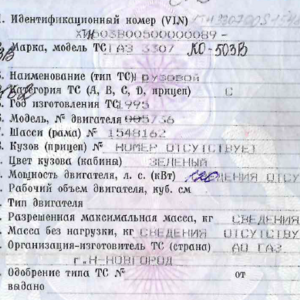 1. Идентификационный номер (VIN)
503B00500000089-
Марка, модель ТС ГАЗ 3307 КО-503В
3. Наименование (тип ТС) ГРУЗОВОЙ
Категория ТС (A, B, C, D, прицеп) С
Год изготовления ТС 1995
6. Модель, № двигателя 005736
7. Шасси (рама) № 1548162
8. Кузов (прицеп) № НОМЕР ОТСУТСТВУЕТ
Цвет кузова (кабина) ЗЕЛЕНЫЙ
Мощность двигателя, л. с. (кВт) СВЕДЕНИЯ ОТСУ
Рабочий объем двигателя, куб. см
Тип двигателя
Разрешенная максимальная масса, кг СВЕДЕНИЯ
Масса без нагрузки, кг СВЕДЕНИЯ ОТСУТСТВ
Организация-изготовитель ТС (страна) АО ГАЗ
г.Н-НОВГОРОД
Одобрение типа ТС № от
выдано